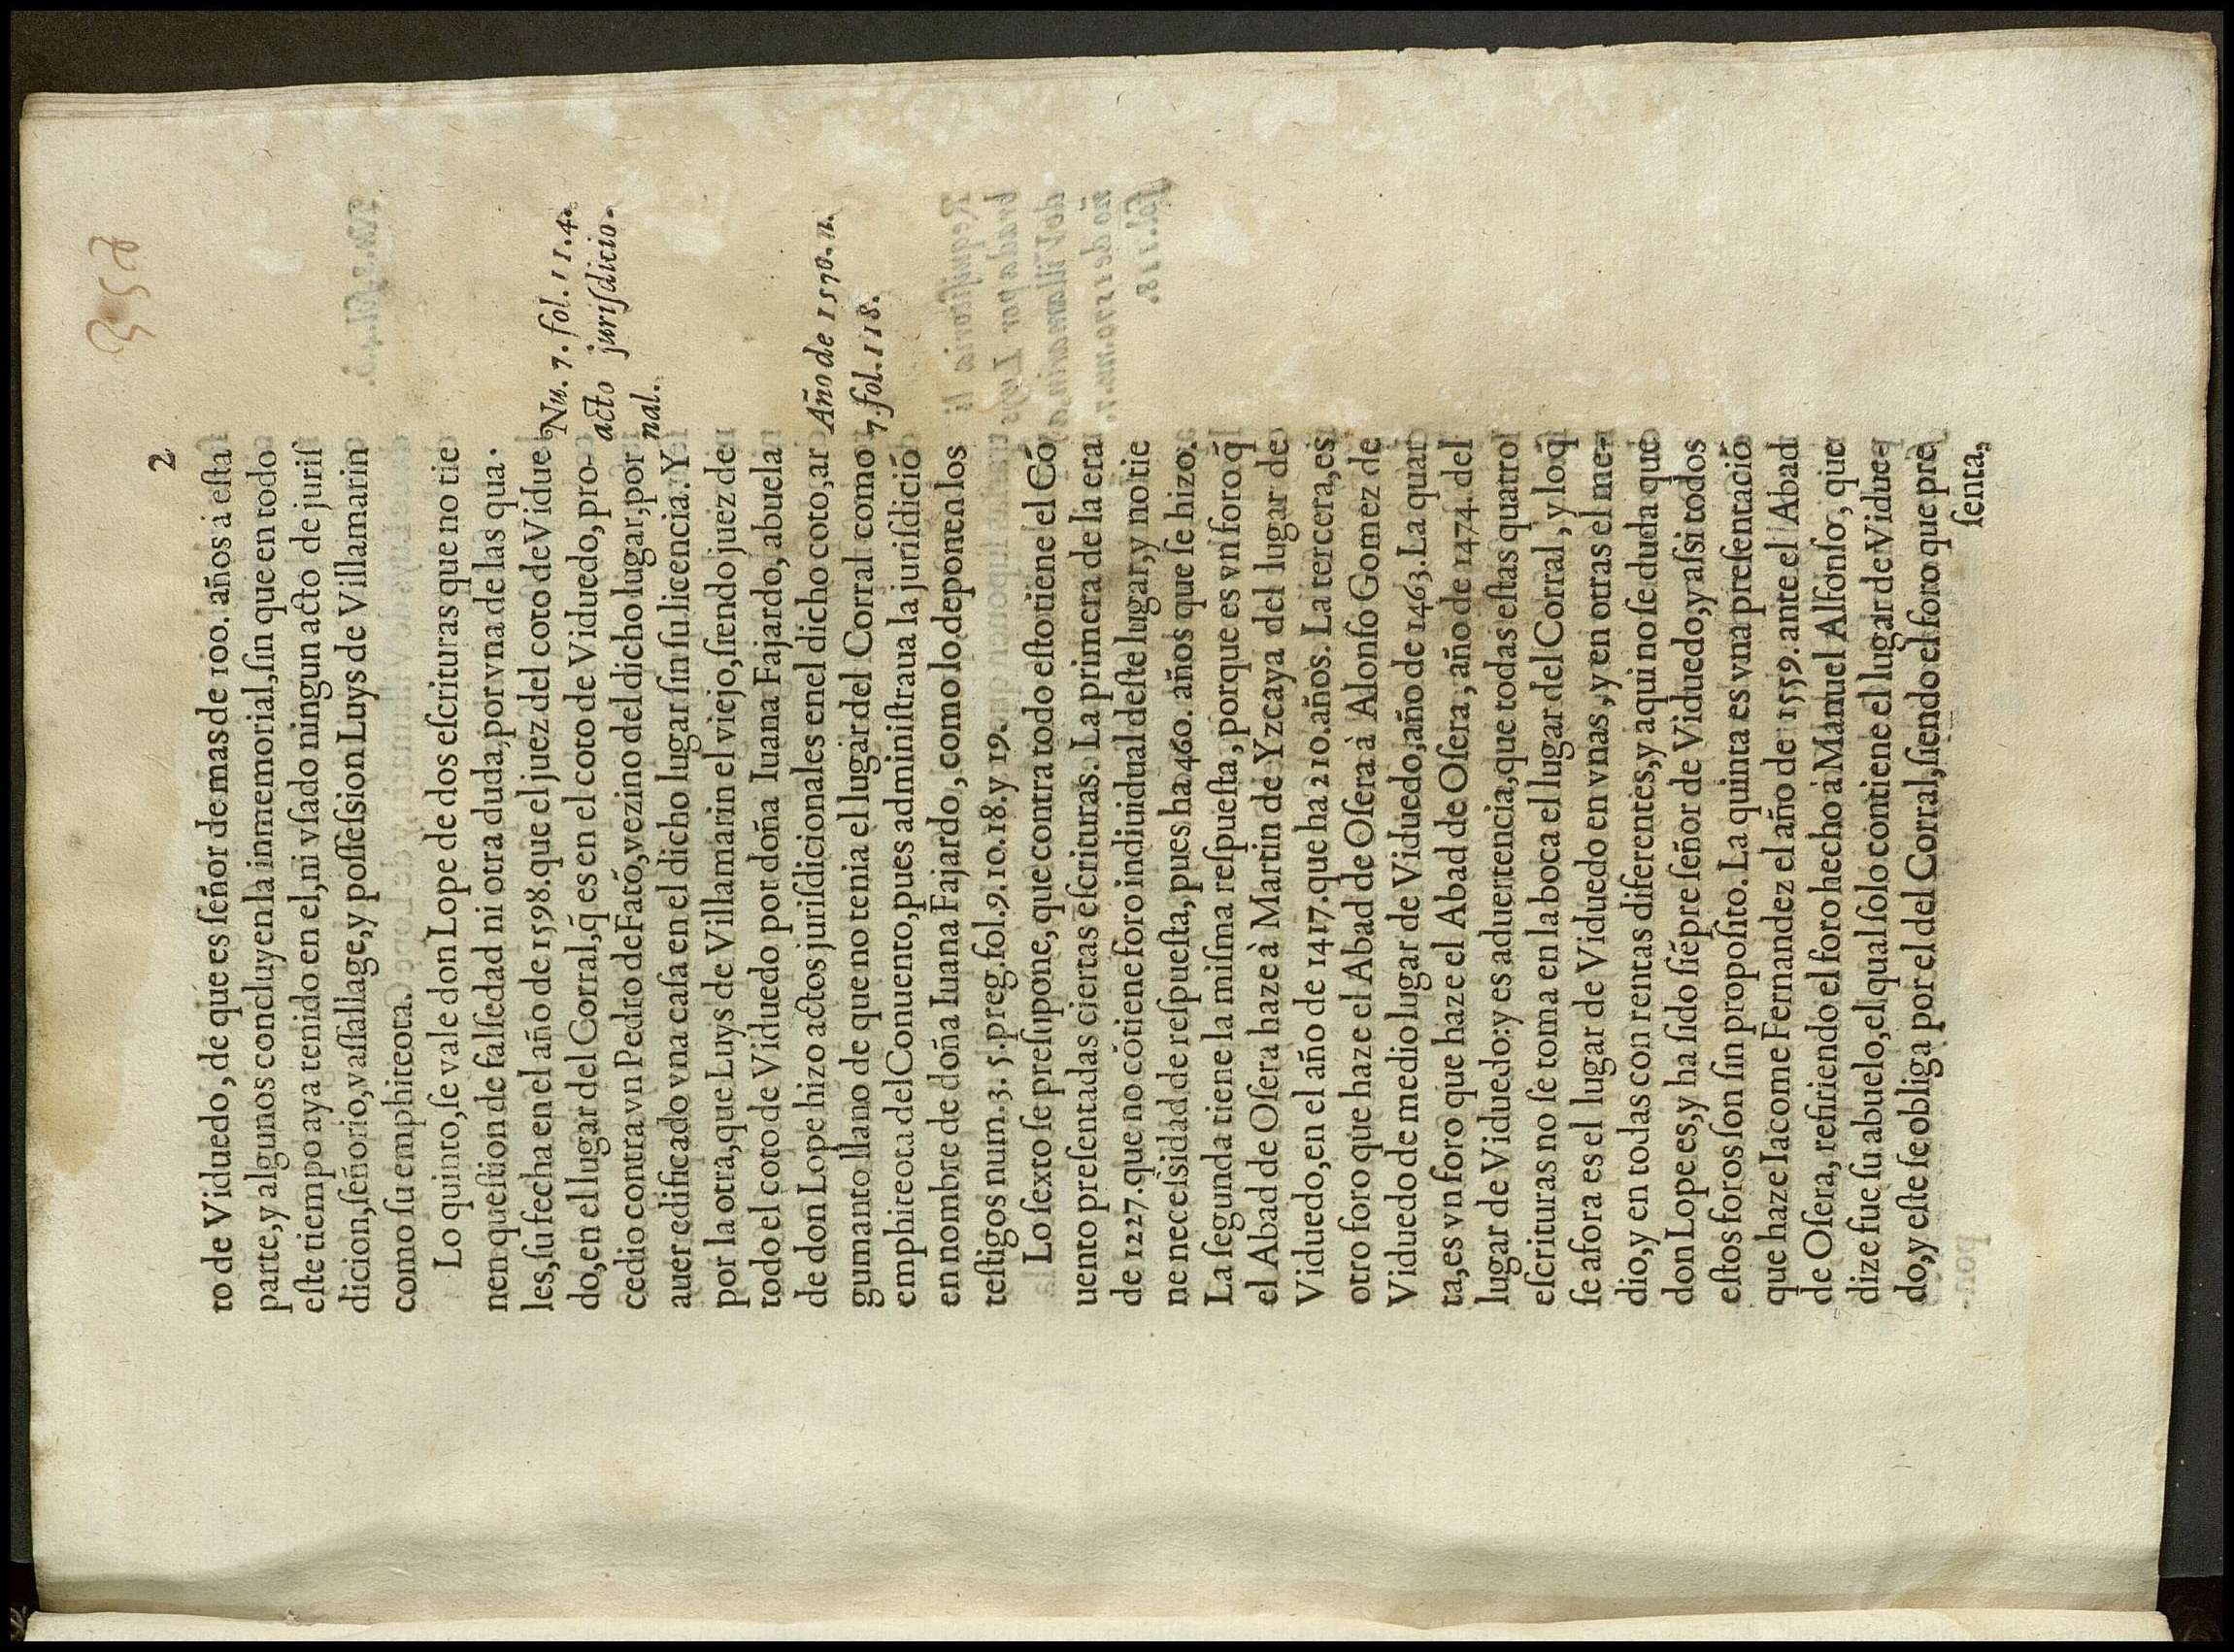 2
to de Viduedo, de que es ſeñor de mas de 100. años à eſta
parte, y algunos concluyen la inmemorial, ſin que en todo
eſte tiempo aya tenido en el, ni vſado ningun acto de juriſ
dicion, ſeñorio, vaſſallage, y poſſeſsion Luys de Villamarin
como ſu emphiteota.
Lo quinto, ſe vale don Lope de dos eſcrituras que no tie
nen queſtion de falſedad ni otra duda, por vna de las qua.
les, ſu fecha en el año de 1598. que el juez del coto de Vidue
do, en el lugar del Corral, q̃ es en el coto de Viduedo, pro-
cedio contra vn Pedro de Fatõ, vezino del dicho lugar, por
auer edificado vna caſa en el dicho lugar ſin ſu licencia. Y
por la otra, que Luys de Villamarin el viejo, ſiendo juez de
todo el coto de Viduedo por doña Iuana Fajardo, abuela
de don Lope hizo actos juriſdicionales en el dicho coto, ar
gumanto llano de que no tenia el lugar del Corral como
emphiteota del Conuento, pues adminiſtraua la juriſdiciõ
en nombre de doña Iuana Fajardo, como lo deponen los
teſtigos num. 3. 5. preg. fol. 9. 10. 18. y 19.
Nu. 7. fol. 11. 4.
acto juriſdicio-
nal.
Año de 1570. n.
7. fol. 118.
Lo ſexto ſe preſupone, que contra todo eſto tiene el Cõ
uento preſentadas ciertas eſcrituras. La primera de la era
de 1227. que no cõtiene foro indiuidual deſte lugar, y no tie
ne neceſsidad de reſpueſta, pues ha 460. años que ſe hizo.
La ſegunda tiene la miſma reſpueſta, porque es vn foro q̃
el Abad de Oſera haze à Martin de Yzcaya del lugar de
Viduedo, en el año de 1417. que ha 210. años. La tercera, es
otro foro que haze el Abad de Oſera à Alonſo Gomez de
Viduedo de medio lugar de Viduedo, año de 1463. La quar
ta, es vn foro que haze el Abad de Oſera, año de 1474. del
lugar de Viduedo: y es aduertencia, que todas eſtas quatro
eſcrituras no ſe toma en la boca el lugar del Corral, y lo q̃
ſe afora es el lugar de Viduedo en vnas, y en otras el me-
dio, y en todas con rentas diferentes, y aqui no ſe duda que
don Lope es, y ha ſido ſiẽpre ſeñor de Viduedo, y aſsi todos
eſtos foros ſon ſin propoſito. La quinta es vna preſentaciõ
que haze Iacome Fernandez el año de 1559. ante el Abad
de Oſera, refiriendo el foro hecho à Manuel Alfonſo, que
dize fue ſu abuelo, el qual ſolo contiene el lugar de Vidue-
do, y eſte ſe obliga por el del Corral, ſiendo el foro que pre
ſenta,